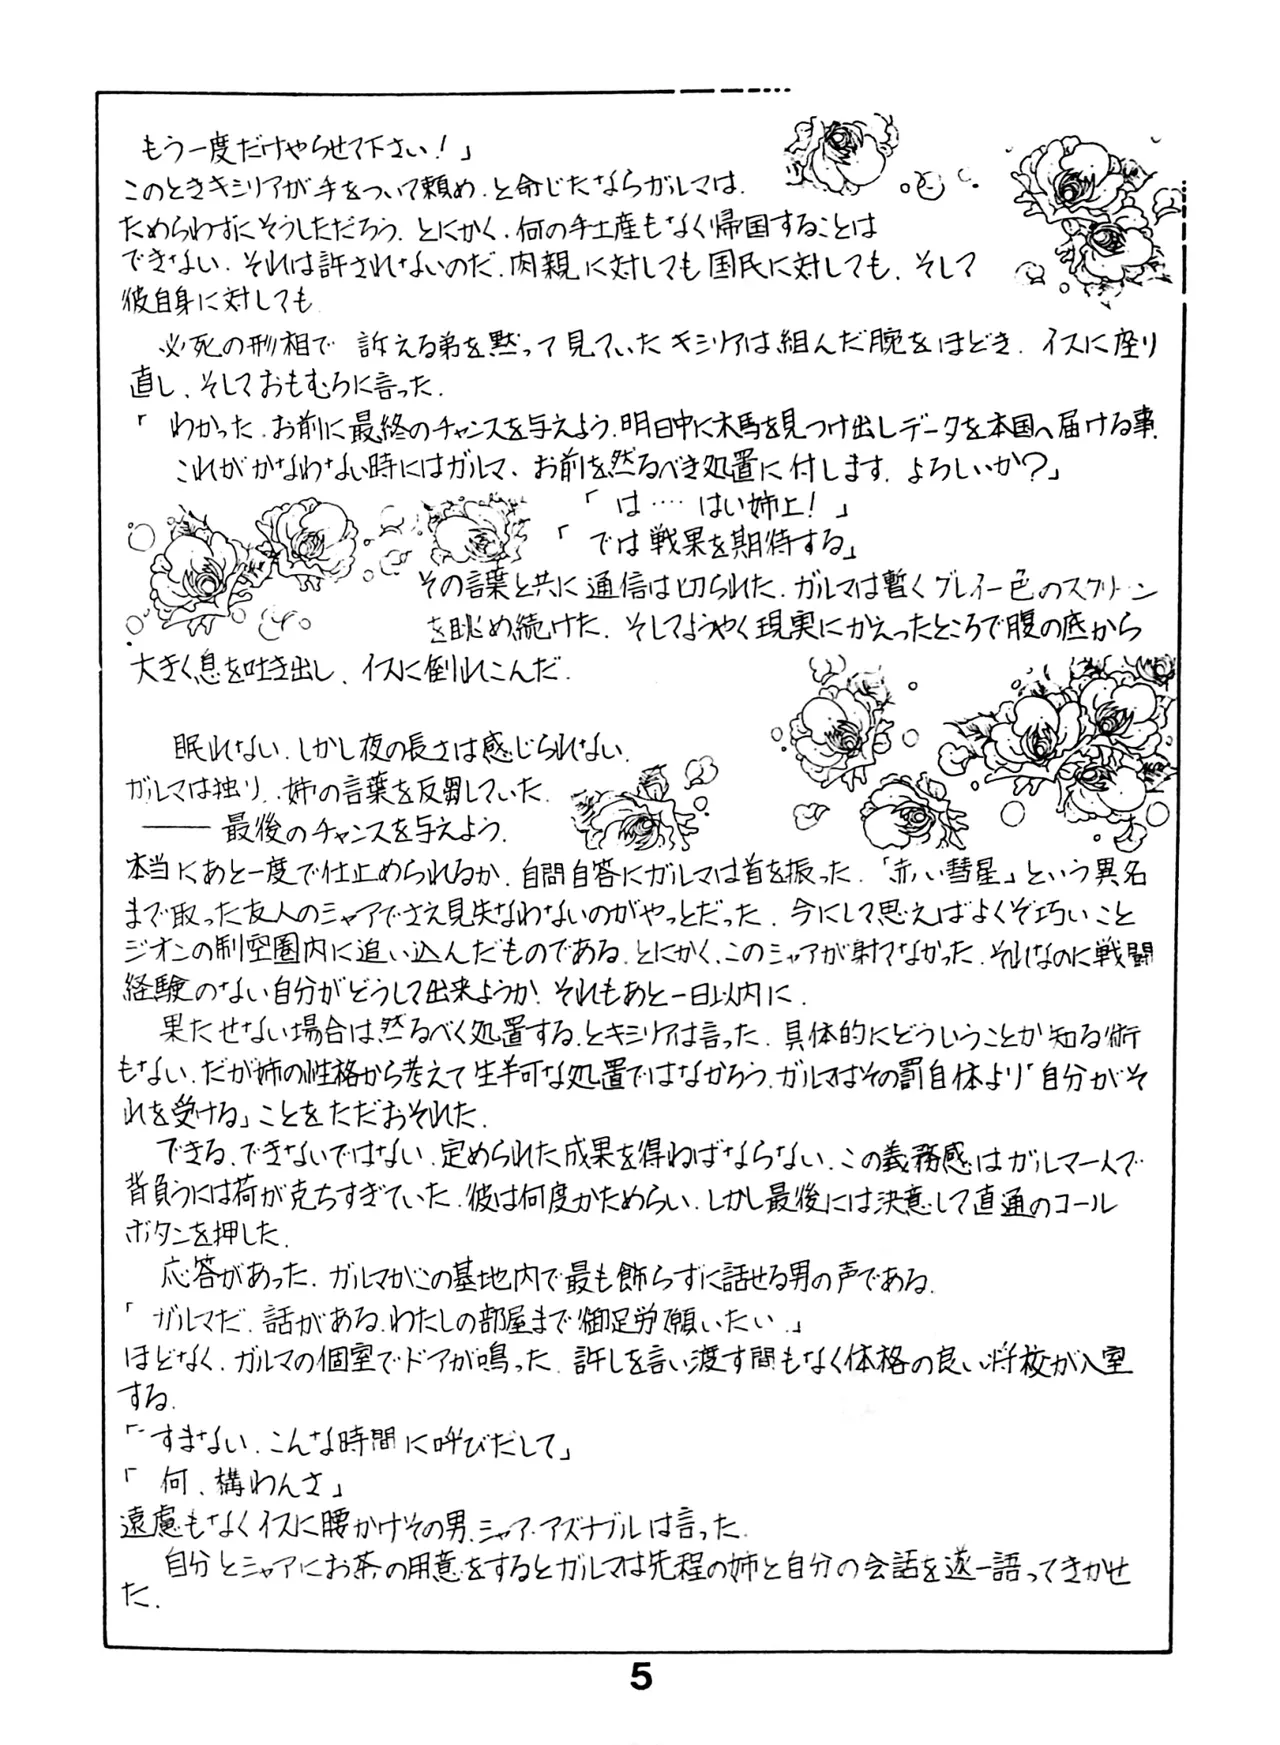 もう一度だけやらせて下さい！」
このときキシリアが手をついて頼め、と命じたならガルマは、
ためらわずにそうしただろう。とにかく、何の手土産もなく帰国することは
できない。それは許されないのだ。肉親に対しても国民に対しても、そして
彼自身に対しても。
必死の形相で訴える弟を黙って見ていたキシリアは組んだ腕をほどき、イスに座り
直し、そしておもむろに言った。
「わかった。お前に最終のチャンスを与えよう。明日中に木馬を見つけ出しデータを本国へ届ける事。
これがかなわない時にはガルマ、お前を然るべき処置に付します。よろしいか？」
「は‥‥はい姉上！」
「では戦果を期待する」
その言葉と共に通信は切られた。ガルマは暫くグレイ一色のスクリーン
を眺め続けた。そしてようやく現実にかえったところで腹の底から
大きく息を吐き出し、イスに倒れこんだ。
眠れない。しかし夜の長さは感じられない。
ガルマは独り、姉の言葉を反芻していた。
――最後のチャンスを与えよう。
本当にあと一度で仕止められるか。自問自答にガルマは首を振った。「赤い彗星」という異名
まで取った友人のシャアでさえ見失なわないのがやっとだった。今にして思えばよくぞ巧いこと
ジオンの制空圏内に追い込んだものである。とにかく、このシャアが射てなかった。それなのに戦闘
経験のない自分がどうして出来ようか。それもあと一日以内に。
果たせない場合は然るべく処置する、とキシリアは言った。具体的にどういうことか知る術
もない。だが姉の性格から考えて生半可な処置ではなかろう。ガルマはその罰自体より「自分がそ
れを受ける」ことをただおそれた。
できる、できないではない。定められた成果を得ねばならない。この義務感はガルマ一人で
背負うには荷が克ちすぎていた。彼は何度かためらい、しかし最後には決意して直通のコール
ボタンを押した。
応答があった。ガルマがこの基地内で最も飾らずに話せる男の声である。
「ガルマだ。話がある。わたしの部屋まで御足労願いたい。」
ほどなく、ガルマの個室でドアが鳴った。許しを言い渡す間もなく体格の良い将校が入室
する。
「すまない。こんな時間に呼びだして」
「何、構わんさ」
遠慮もなくイスに腰かけその男、シャア・アズナブルは言った。
自分とシャアにお茶の用意をするとガルマは先程の姉と自分の会話を逐一語ってきかせ
た。
5